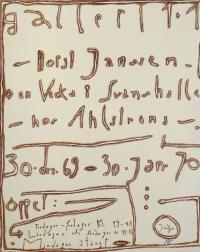 galleri 1.1
- Horst Janssen -
en vecka i Svaneholle
- hos Ahlströms -
30. dec. 69 - 30. jan. 70
öppet:
Tisdagar - Fredagar Kl. 19-90
Lördagar och Söndagar
Måndagar stängt